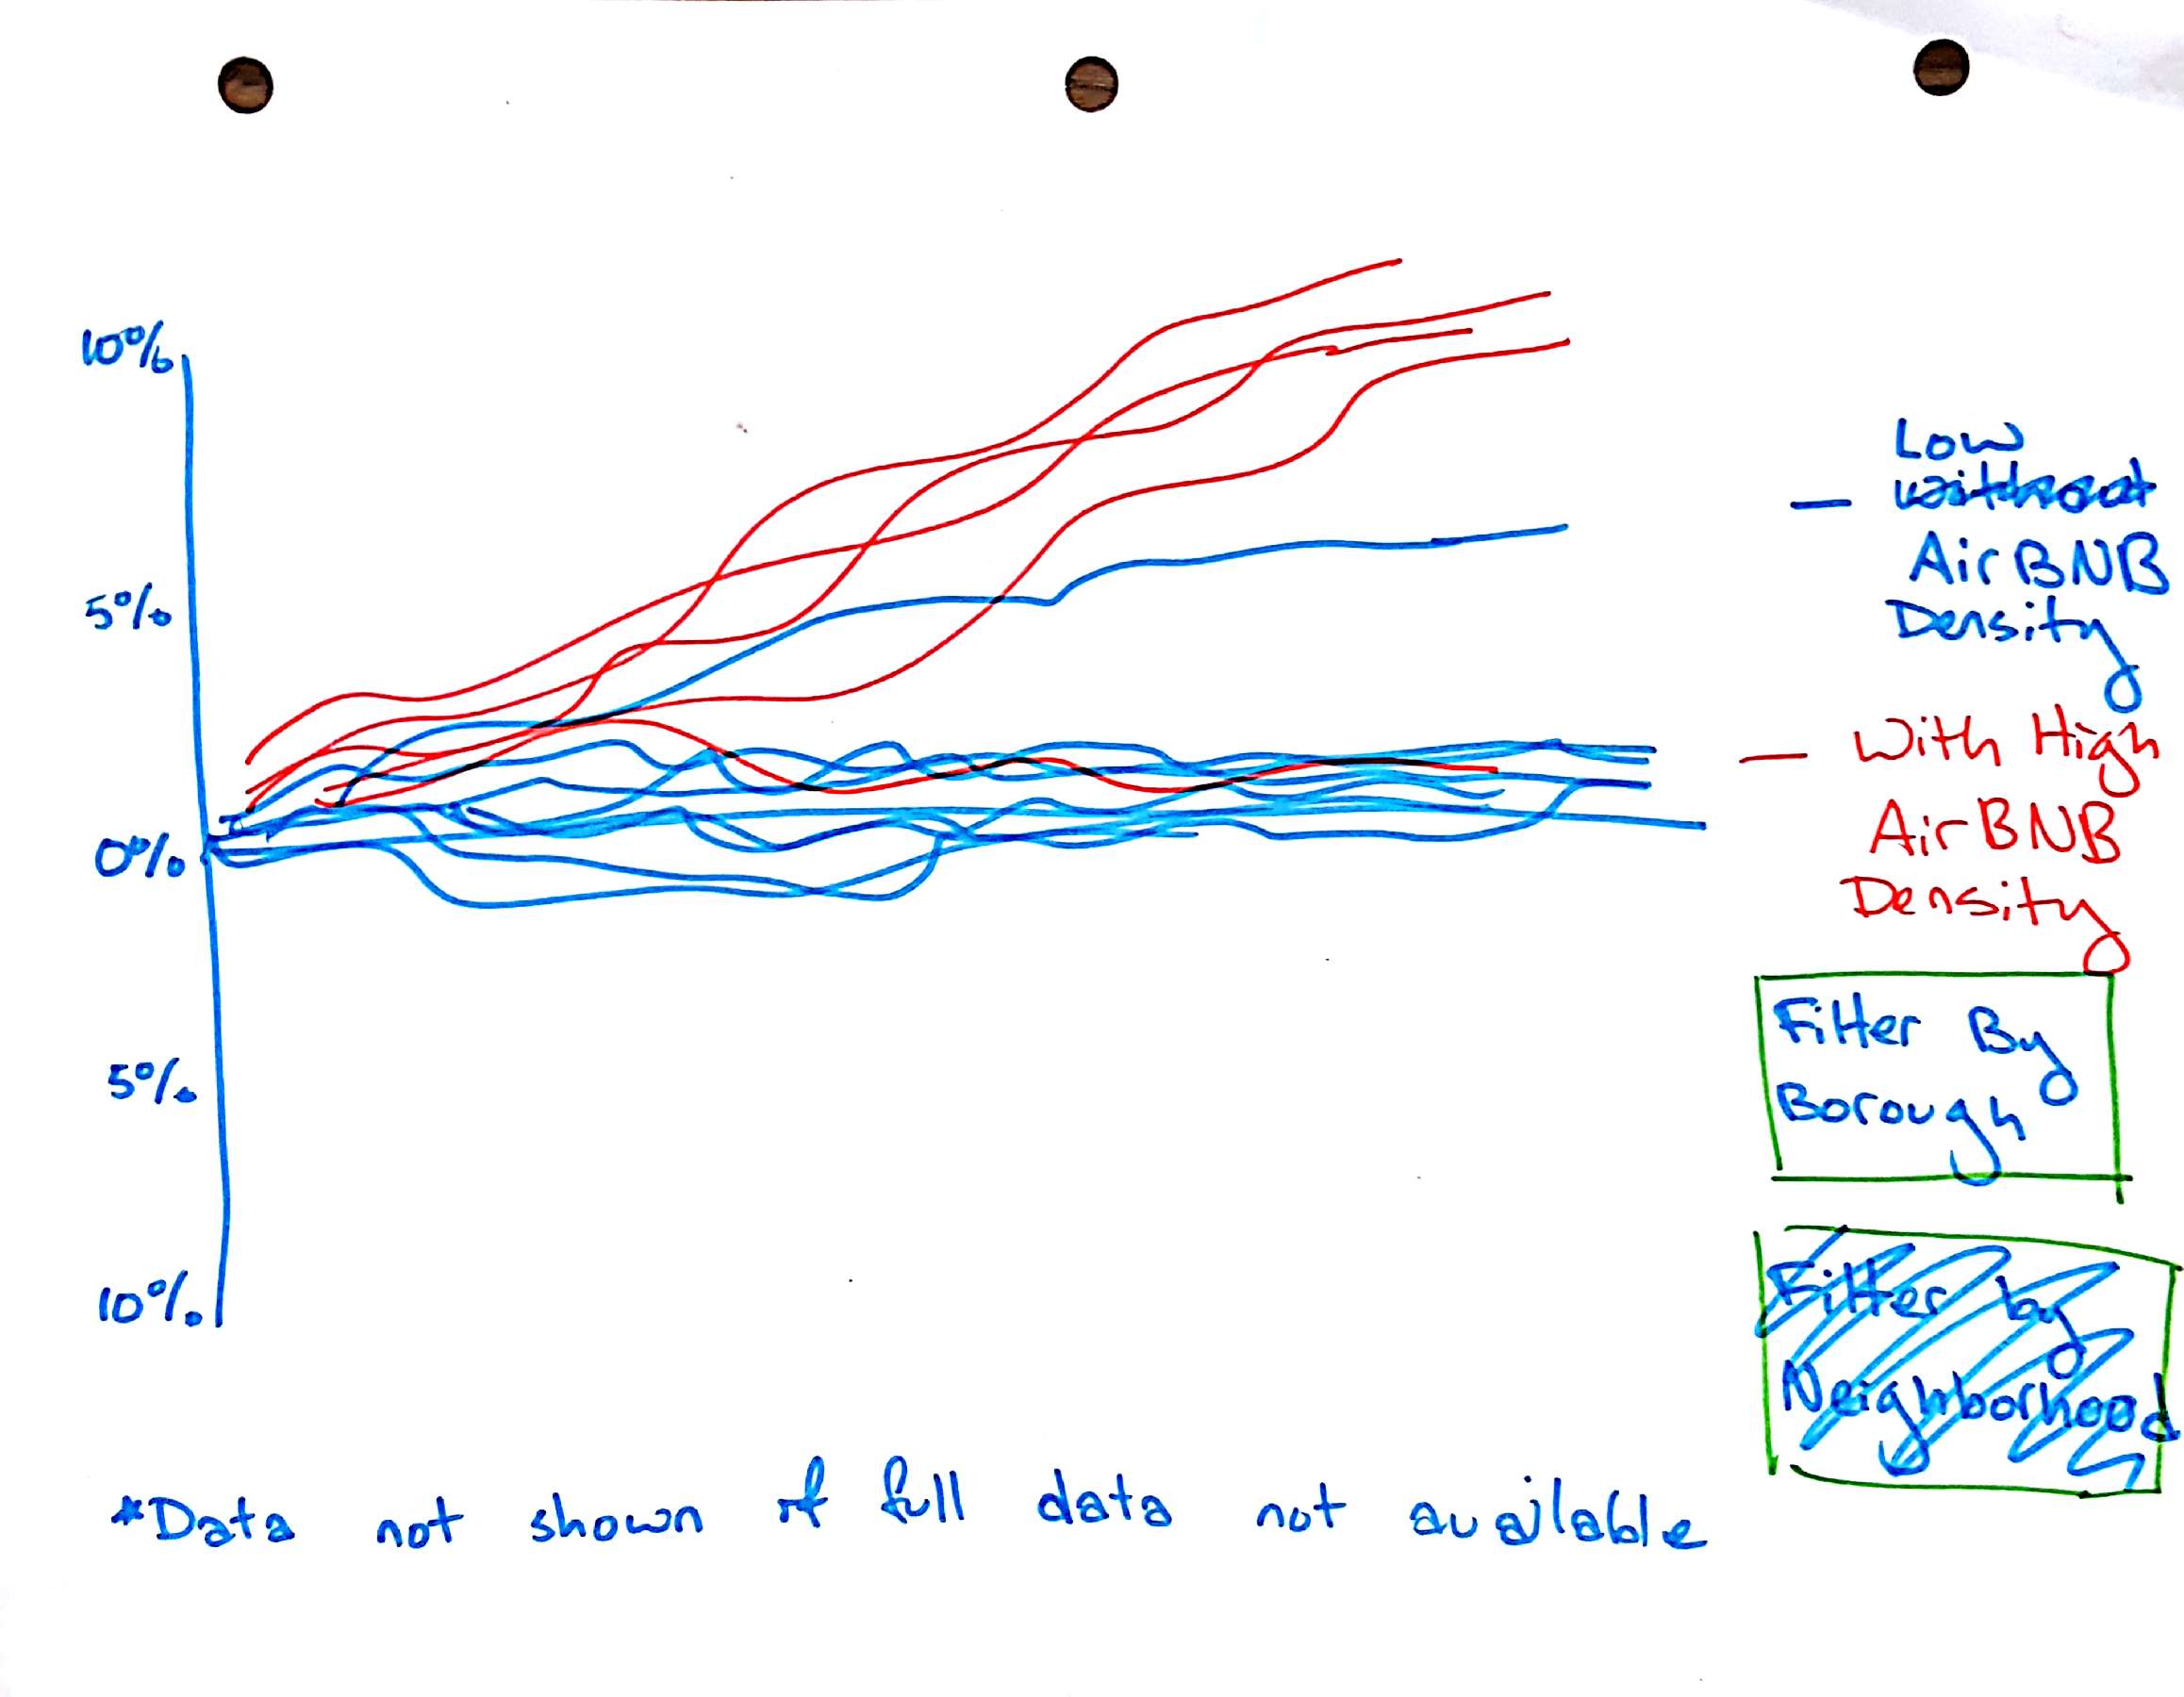 10%
5%
0%
5%
10%
Low
— without
AirBNB
Density
— With High
AirBNB
Density
Filter By
Borough
Filter by
Neighborhood
*Data not shown if full data not available